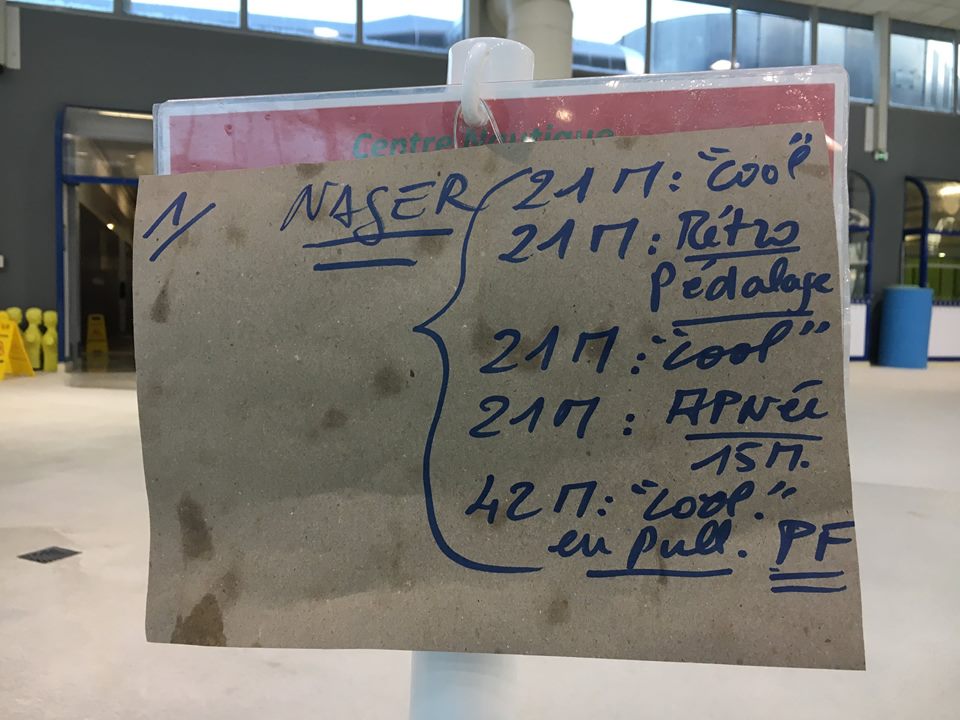 Centre Nautique
1/ NAGER 21 M : "cool"
21 M : Rétro
Pédalage
21 M : "cool"
21 M : APNée
15 M.
42 M : "cool."
en pull. PF